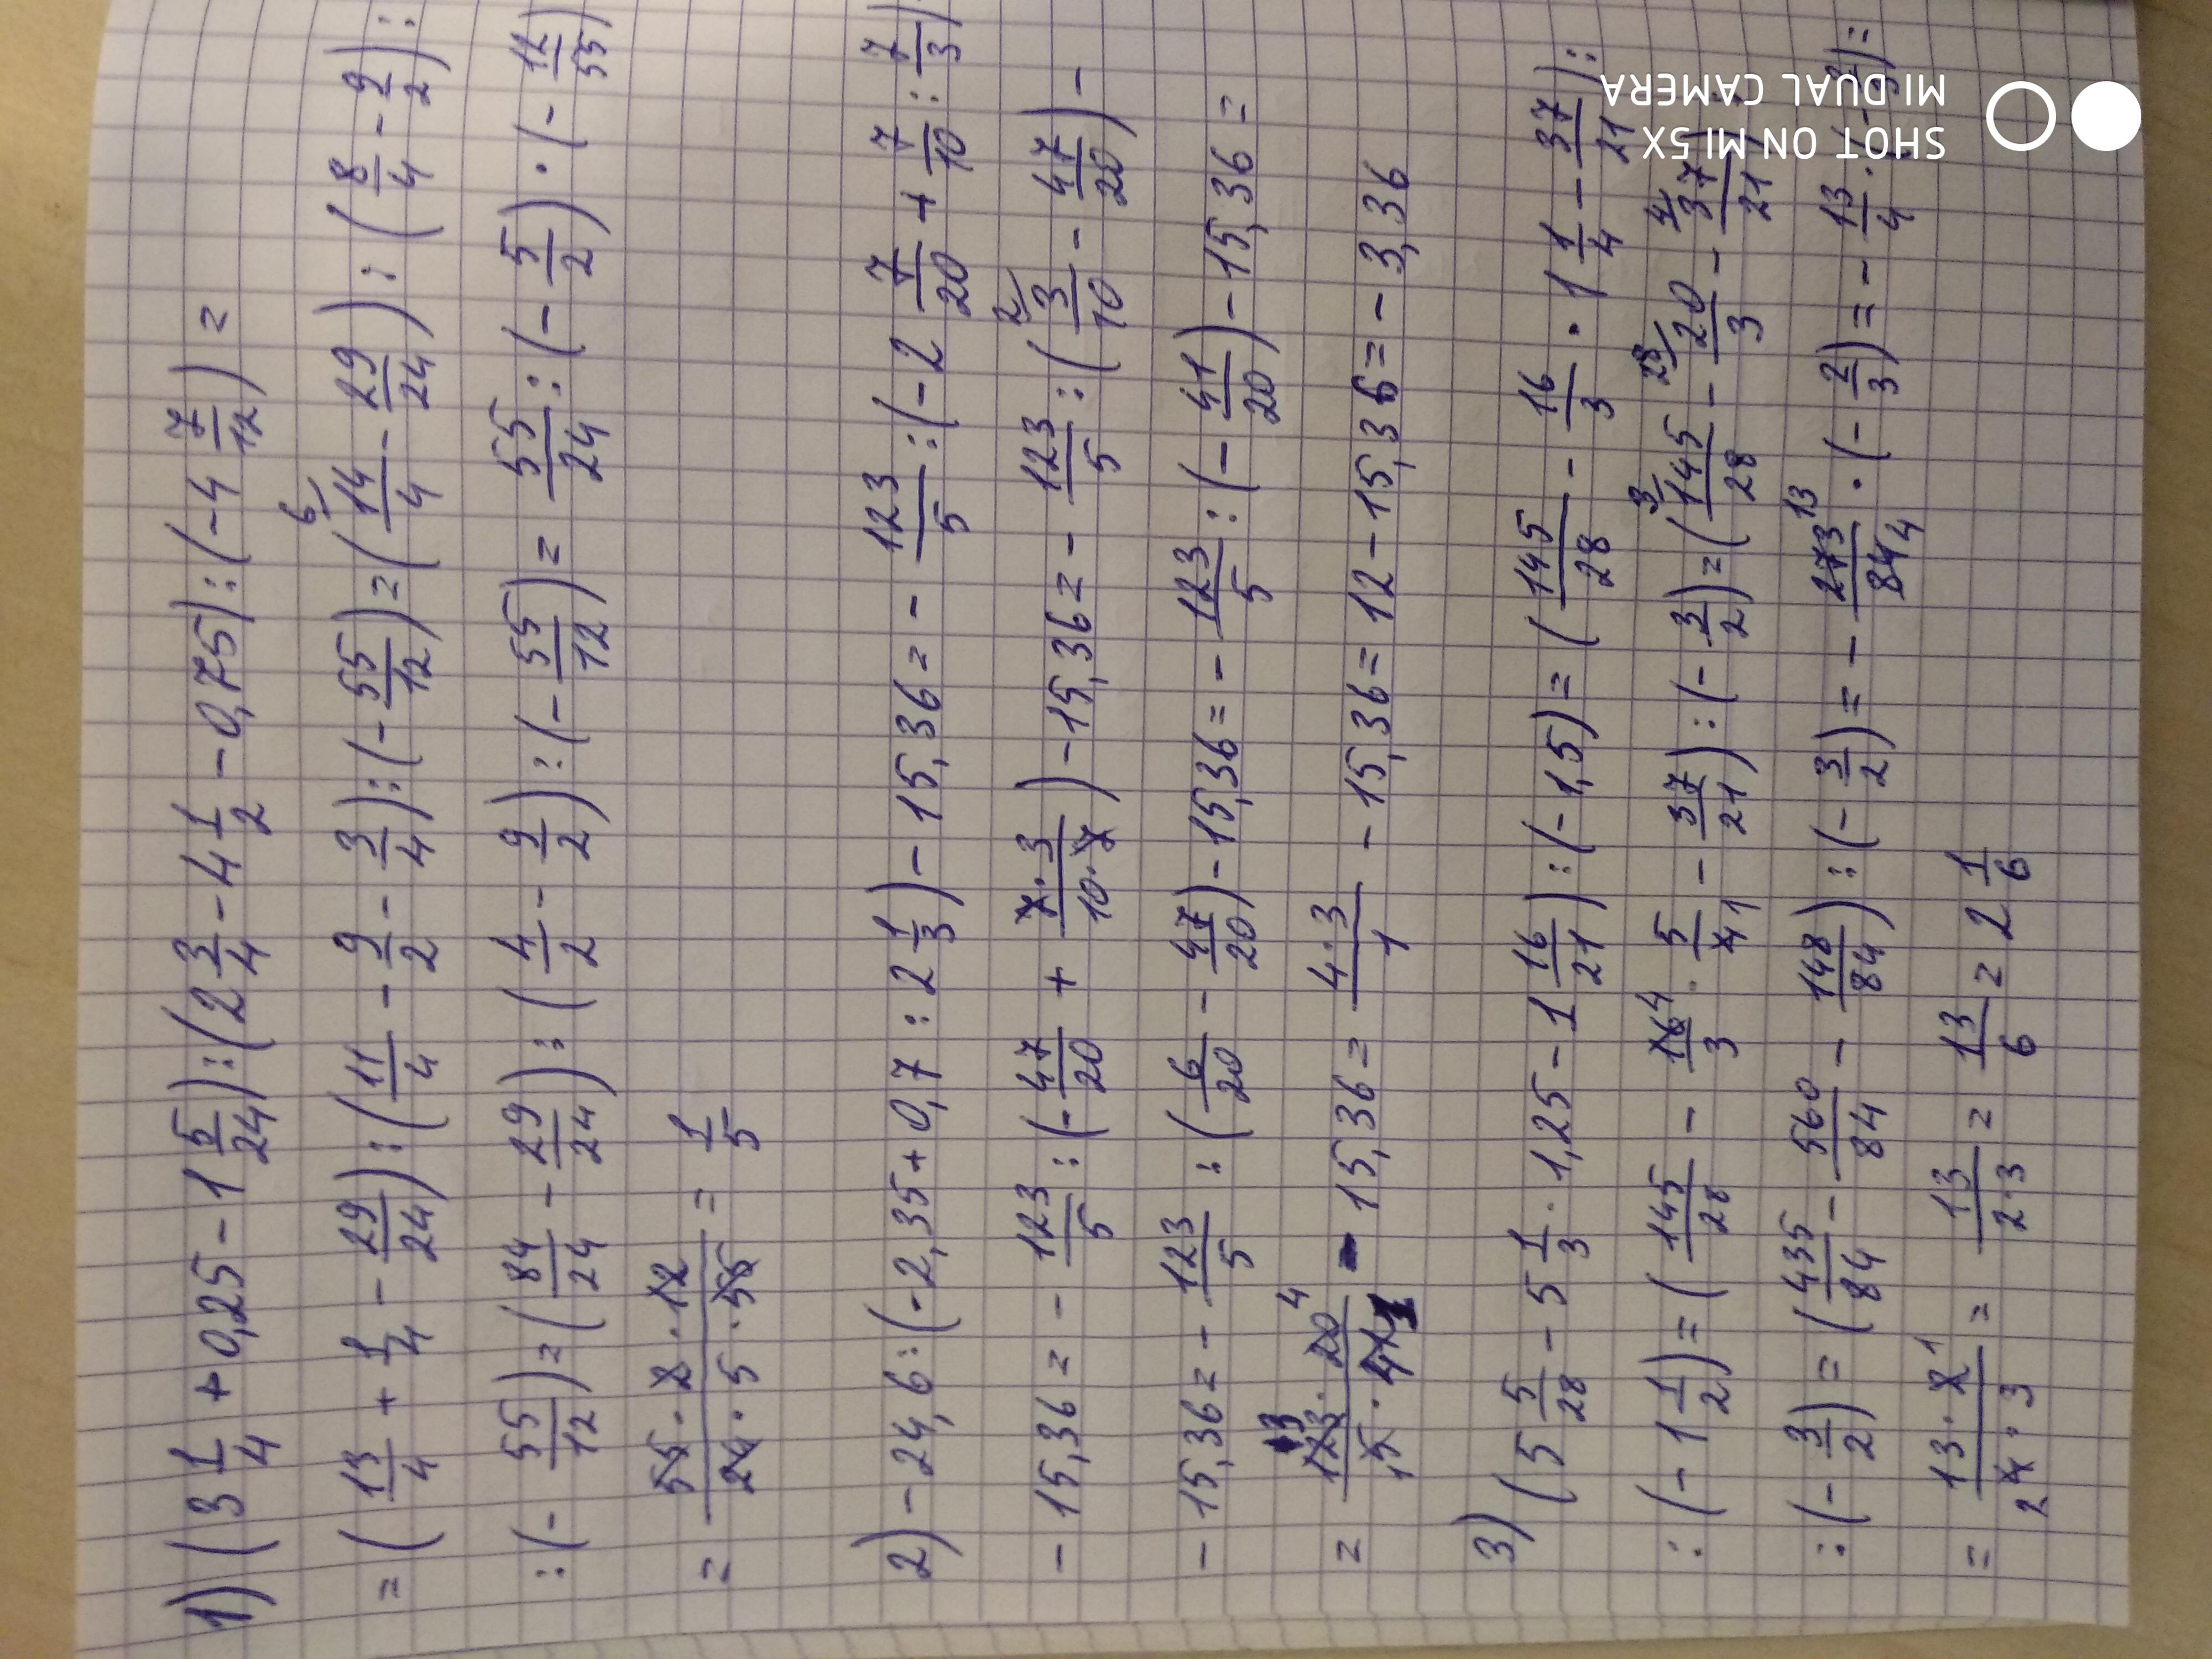 1) (3 1/4 + 0,25 - 1 5/24) : (2 3/4 - 4 1/2 - 0,75) : (-4 7/12) =
= (13/4 + 1/4 - 29/24) : (11/4 - 9/2 - 3/4) : (-55/12) = (14/4 - 29/24) : (8/4 - 9/2) :
: (-55/12) = (84/24 - 29/24) : (4/2 - 9/2) : (-55/12) = 55/24 : (-5/2) · (-12/55)
= 55 · 2 · 12 / 24 · 5 · 55 = 1/5
2) -24,6 : (-2,35 + 0,7 : 2 1/3) - 15,36 = - 123/5 : (-2 7/20 + 7/10 : 7/3)
- 15,36 = - 123/5 : (-47/20 + 7·3/10·7) - 15,36 = - 123/5 : (3/10 - 47/20) -
- 15,36 = - 123/5 : (6/20 - 47/20) - 15,36 = - 123/5 : (- 41/20) - 15,36 =
= 123 · 20 / 5 · 41 - 15,36 = 4·3/1 - 15,36 = 12 - 15,36 = - 3,36
3) (5 5/28 - 5 1/3 · 1,25 - 1 16/21) : (-1,5) = (145/28 - 16/3 · 1 1/4 - 37/21) :
: (-1 1/2) = (145/28 - 16/3 · 5/4 - 37/21) : (-3/2) = (145/28 - 20/3 - 37/21)
: (-3/2) = (435/84 - 560/84 - 148/84) : (-3/2) = - 273/84 · (-2/3) = - 13/4 ·
= 13 · 2 / 4 · 3 = 13/2·3 = 13/6 = 2 1/6
SHOT ON MI 5X
MI DUAL CAMERA